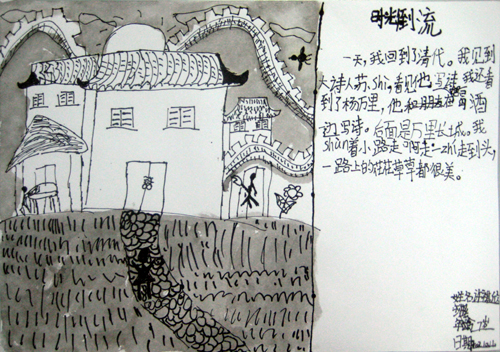 时光倒流
一天，我回到了清代。我见到
大诗人苏shi，看见他写诗，我还看
到了杨万里，他和朋友喝酒
边写诗。后面是万里长城。我
shùn着小路走啊走一zhí走到头，
一路上的花花草草都很美。
姓名
7岁
日期